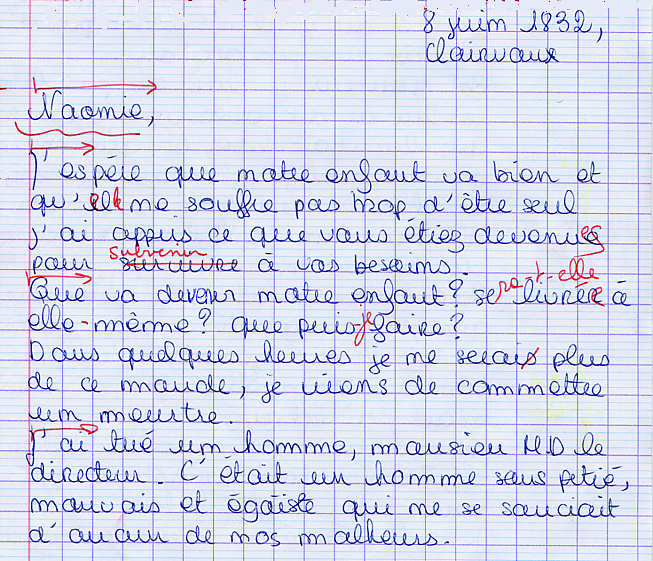 8 juin 1832,
Clairvaux
Naomie,
J'espère que notre enfant va bien et
qu'elle ne souffre pas trop d'être seul
j'ai appris ce que vous étiez devenues
subvenir
pour survivre à vos besoins.
Que va devenir notre enfant? sera-t-elle livrée à
elle-même? que puis-je faire?
Dans quelques heures je ne serais plus
de ce monde, je viens de commettre
un meurtre.
J'ai tué un homme, monsieur MD le
directeur. C'était un homme sans pitié,
mauvais et égoïste qui ne se souciait
d'aucun de nos malheurs.